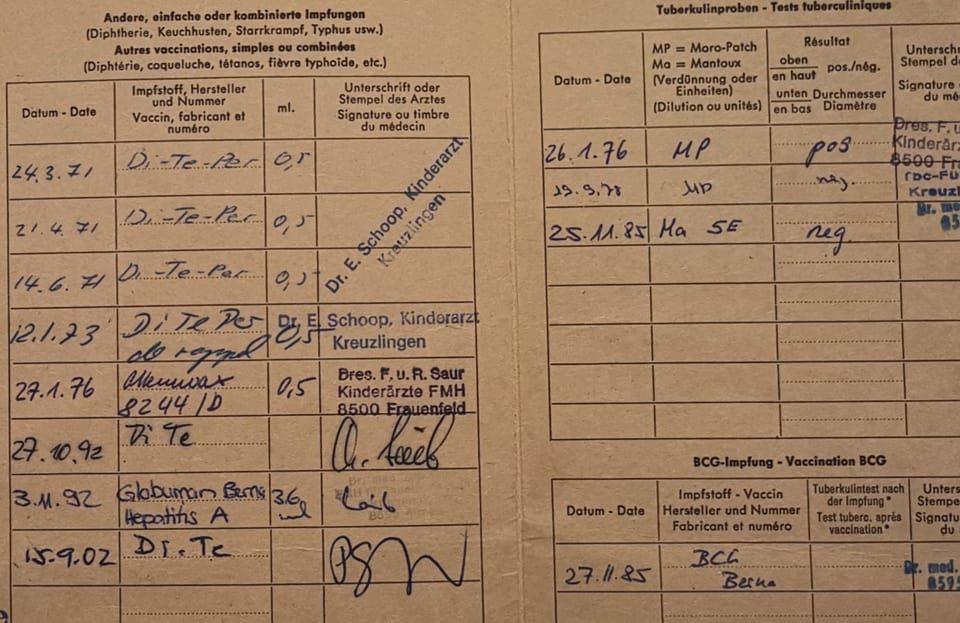 Andere, einfache oder kombinierte Impfungen
(Diphtherie, Keuchhusten, Starrkrampf, Typhus usw.)
Autres vaccinations, simples ou combinées
(Diphtérie, coqueluche, tétanos, fièvre typhoïde, etc.)
Datum - Date
Impfstoff, Hersteller und Nummer
Vaccin, fabricant et numéro
ml.
Unterschrift oder Stempel des Arztes
Signature ou timbre du médecin
24.3.71 Di-Te-Per 0,5
21.4.71 Di-Te-Per 0,5
14.6.71 Di-Te-Per 0,5
Dr. E. Schoop, Kinderarzt
Kreuzlingen
12.1.73 Di Te Per 0,5 Dr. E. Schoop, Kinderarzt
rappel Kreuzlingen
27.1.76 8244/D 0,5
Dres. F. u. R. Saur
Kinderärzte FMH
8500 Frauenfeld
27.10.92 Di Te
3.11.92 Globuman Berna 3.6 ml
Hepatitis A
15.9.02 Di.Te
Tuberkulinproben - Tests tuberculiniques
Datum - Date
MP = Moro-Patch
Ma = Mantoux
(Verdünnung oder Einheiten)
(Dilution ou unités)
Résultat
oben
en haut
pos./nég.
unten
en bas
Durchmesser
Diamètre
Unterschr
Stempel de
Signature
du mé
26.1.76 MP pos
Dres. F. u
Kinderär
8500 Fra
19.9.78 MP neg.
Kreuz
25.11.85 Ma 5E neg.
Dr. med
BCG-Impfung - Vaccination BCG
Datum - Date
Impfstoff - Vaccin
Hersteller und Nummer
Fabricant et numéro
Tuberkulintest nach der Impfung*
Test tuberc. après vaccination*
Unters
Stempe
Signatu
du
27.11.85 BCG
Berna
Dr. med.
8595